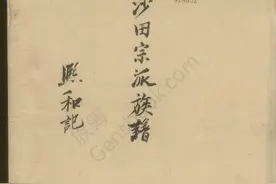 沙田宗派族譜
熙和記